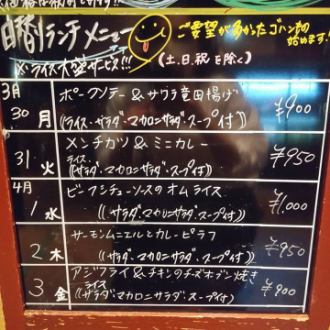 日替りランチメニュー
ご要望が多かったゴハン物
始めます!!
※ライス大盛サービス!!!
(土、日、祝を除く)
3月
30 月
ポークソテー&サワラ竜田揚げ
((ライス・サラダ・マカロニサラダ・スープ付))
¥900
31 火
メンチカツ&ミニカレー
ライス
((サラダ・マカロニサラダ・スープ付))
¥950
4月
1 水
ビーフシチューソースのオムライス
((サラダ・マカロニサラダ・スープ付))
¥1,000
2 木
サーモンムニエルとカレーピラフ
((サラダ・マカロニサラダ・スープ付))
¥950
3 金
アジフライ&チキンのチーズオーブン焼き
ライス
((サラダ・マカロニサラダ・スープ付))
¥900